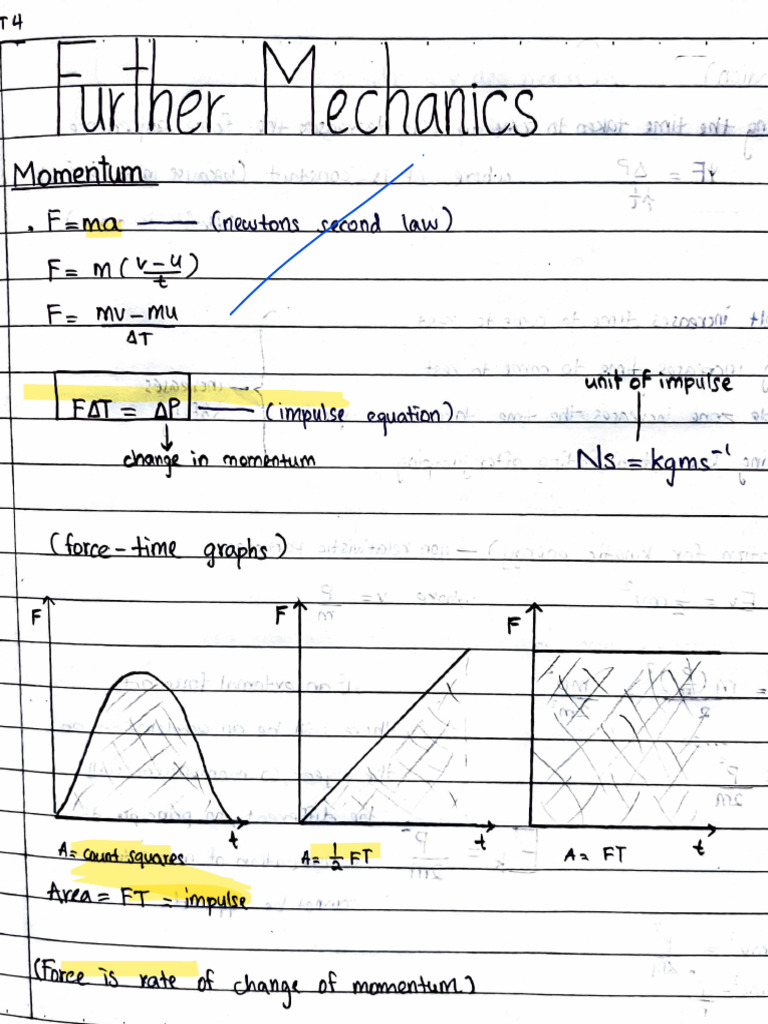 T4
Further Mechanics
Momentum
. F = ma —— (newtons second law)
F = m (v-u/t)
F = mv - mu / ΔT
FΔT = ΔP —— (impulse equation)
↓
change in momentum
unit of impulse
Ns = kgms⁻¹
(force-time graphs)
F
F
F
t
t
t
A= count squares
A= 1/2 FT
A= FT
Area = FT = impulse
(Force is rate of change of momentum.)